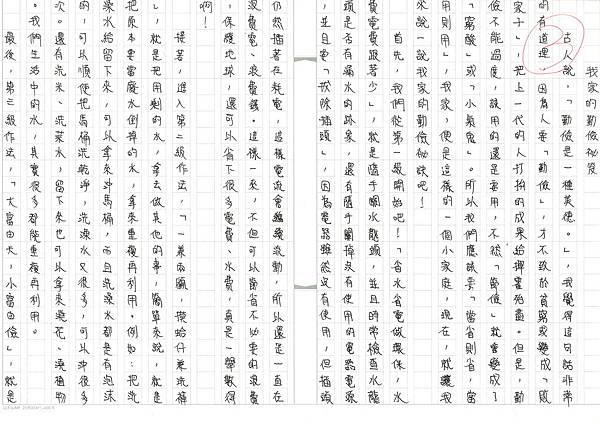 我家的勤儉秘笈
古人說，「勤儉是一種美德。」，我覺得這句話非常
的有道理，因為人要「勤儉」，才不致於貧窮或變成「敗
家子」，把上一代的人打拚的成果給揮霍殆盡。但是，勤
儉不能過度，該用的還是要用，不然「節儉」就會變成了
「窮酸」或「小氣鬼」。所以我們應該要「當省則省，當
用則用」，我家，便是這樣的一個小家庭，現在，就讓我
來說一說我家的勤儉秘訣吧！
首先，我們從第一級開始吧！「省水省電做環保，水
費電費跟著少」，就是隨手關水龍頭，並且時常檢查水龍
頭是否有漏水的跡象，還有隨手關掉沒有使用的電器電源
，並且要「拔除插頭」，因為電器雖然沒有使用，但插頭
仍然插著在耗電，這樣電流會繼續流動，所以還是一直在
浪費電、浪費錢。這樣一來，不但可以節省不必要的浪費
，保護地球，還可以省下很多電費、水費，真是一舉數得
啊！
接著，進入第二級作法，「一兼兩顧，摸蛤仔兼洗褲
」，就是把用剩的水，拿去做其他的事，簡單來說，就是
把原本要當廢水倒掉的水，拿來重複再利用。例如：把洗
澡水給留下來，可以拿來沖馬桶，而且洗澡水都是有泡沫
的，可以順便把馬桶洗乾淨，洗澡水又很多，可以沖很多
次。還有洗米、洗菜水，留下來也可以拿來澆花、澆植物
。我們生活中的水，其實很多都能重複再利用。
最後，第三級作法，「大富由天，小富由儉」，就是